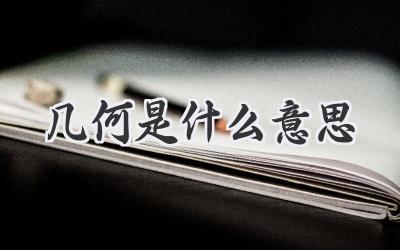 几何是什么意思